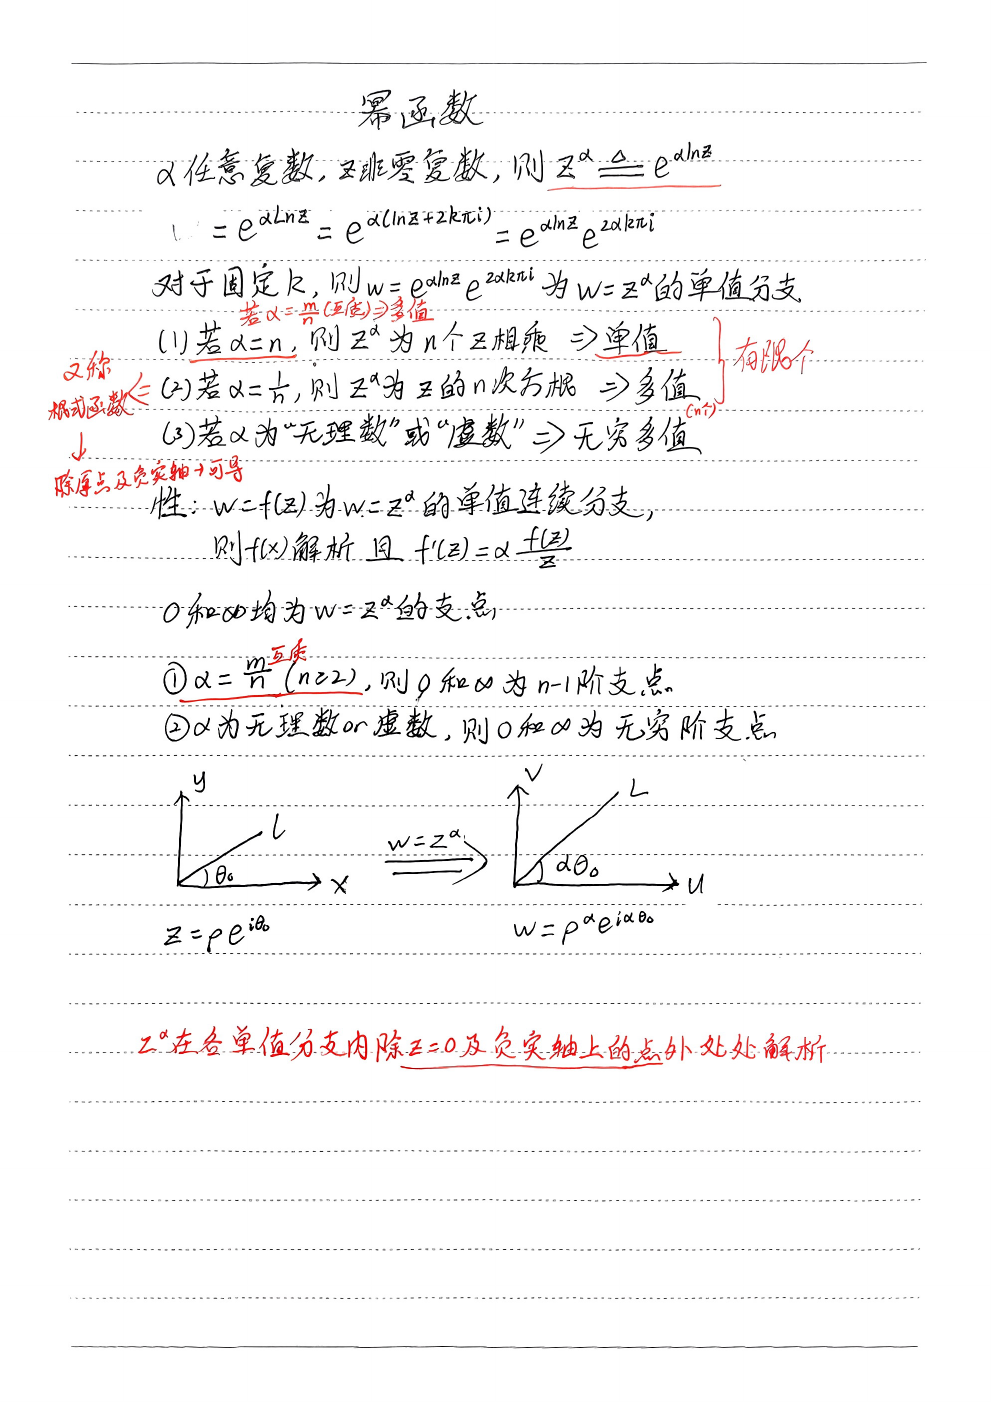 幂函数
α任意复数,z非零复数,则 z^α ≜ e^{αlnz}
= e^{αLnz} = e^{α(lnz+2kπi)} = e^{αlnz} e^{2αkπi}
对于固定k,则w=e^{αlnz} e^{2αkπi}为w=z^α的单值分支
若α=m/n(互质)⇒多值
(1)若α=n,则z^α为n个z相乘 ⇒单值
有限个
又称
根式函数
(2)若α=1/n,则z^α为z的n次方根 ⇒多值
(n个)
(3)若α为“无理数”或“虚数”⇒无穷多值
↓
除原点及负实轴→可导
性:w=f(z)为w=z^α的单值连续分支,
则f(x)解析且 f'(z)=α f(z)/z
0和∞均为w=z^α的支点
互质
①α=m/n(n≥2),则0和∞为n-1阶支点
②α为无理数or虚数,则0和∞为无穷阶支点
y
l
θ₀
x
w=z^α
v
L
αθ₀
u
z=ρe^{iθ₀}
w=ρ^α e^{iαθ₀}
z^α在各单值分支内除z=0及负实轴上的点外处处解析